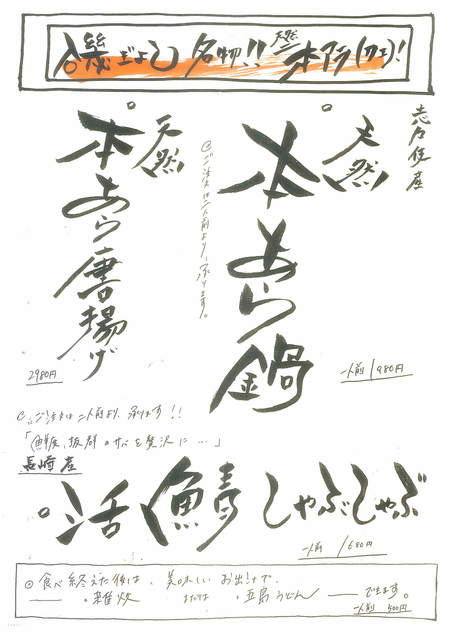 磯ぎよし 名物!! 天然 本アラ(クエ)!
志々伎産
天然
本あら鍋
一人前 1980円
ご注文は二人前より、承ります。
天然
本あら唐揚げ
2980円
ご注文は二人前より、承ります!!
「鮮度、抜群のサバを贅沢に…」
長崎産
活鯖しゃぶしゃぶ
一人前 1680円
食べ終えた後は、美味しいお出汁で、
・雑炊 または ・五島うどん ができます。
一人前 500円